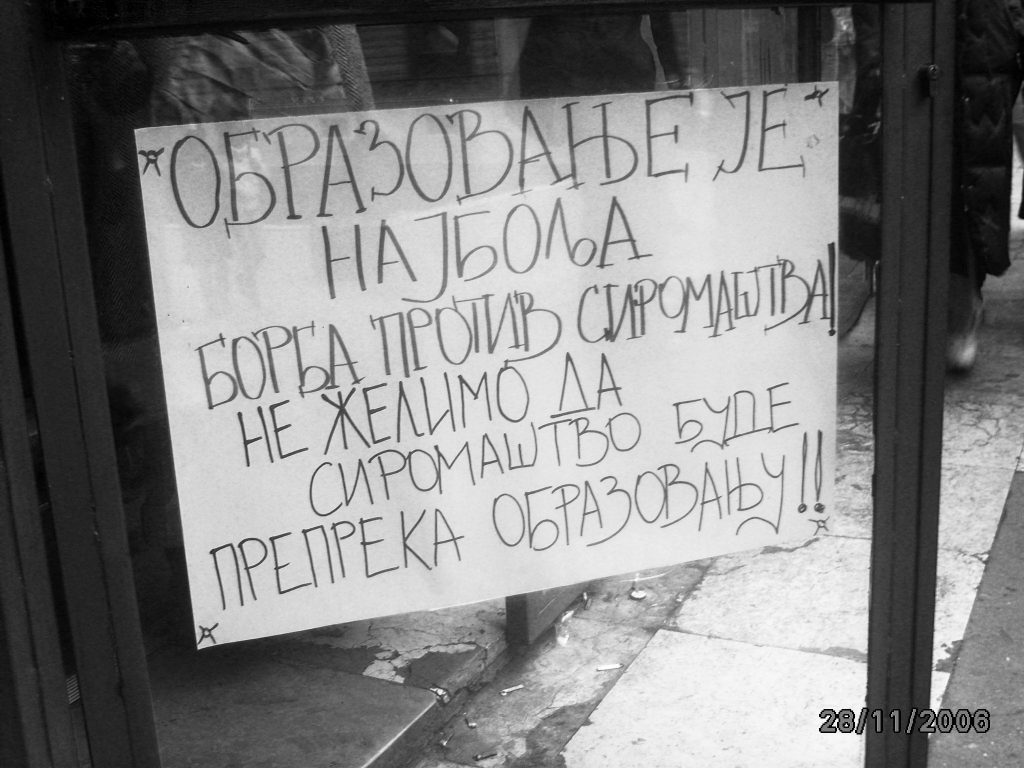 ОБРАЗОВАЊЕ ЈЕ
НАЈБОЉА
БОРБА ПРОТИВ СИРОМАШТВА!
НЕ ЖЕЛИМО ДА
СИРОМАШТВО БУДЕ
ПРЕПРЕКА ОБРАЗОВАЊУ!!
28/11/2006